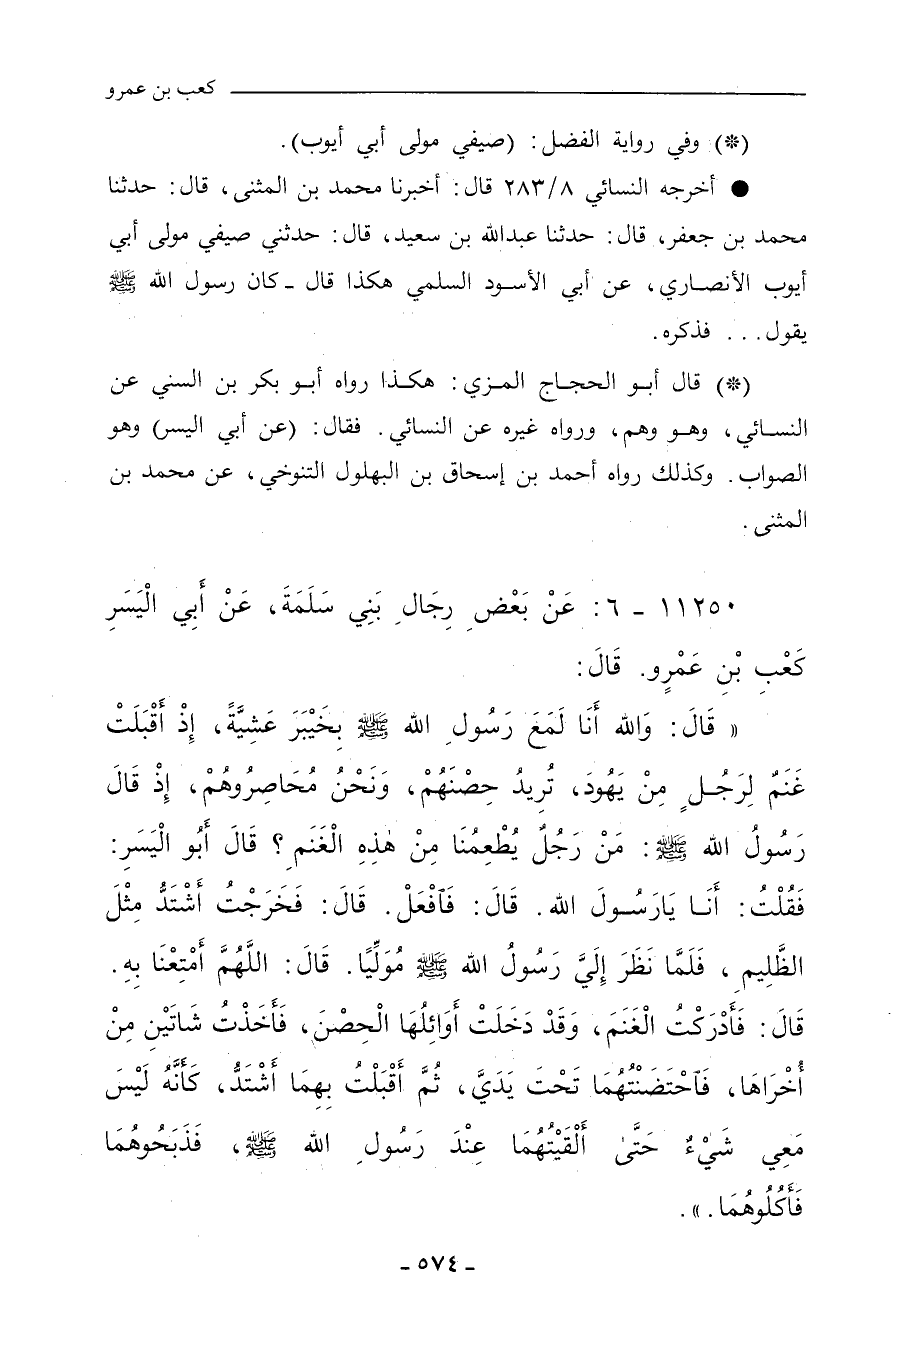 كعب بن عمرو
(*) وفي رواية الفضل: (صيفي مولى أبي أيوب).
● أخرجه النسائي ٢٨٣/٨ قال: أخبرنا محمد بن المثنى، قال: حدثنا
محمد بن جعفر، قال: حدثنا عبدالله بن سعيد، قال: حدثني صيفي مولى أبي
أيوب الأنصاري، عن أبي الأسود السلمي هكذا قال ـ كان رسول الله ﷺ
يقول... فذكره.
(*) قال أبو الحجاج المزي: هكذا رواه أبو بكر بن السني عن
النسائي، وهو وهم، ورواه غيره عن النسائي. فقال: (عن أبي اليسر) وهو
الصواب. وكذلك رواه أحمد بن إسحاق بن البهلول التنوخي، عن محمد بن
المثنى.
١١٢٥٠ ـ ٦: عَنْ بَعْضِ رِجَالِ بَنِي سَلَمَةَ، عَنْ أَبِي الْيَسَرِ
كَعْبِ بْنِ عَمْرٍو. قَالَ:
« قَالَ: وَالله أَنَا لَمَعَ رَسُولِ الله ﷺ بِخَيْبَرَ عَشِيَّةً، إِذْ أَقْبَلَتْ
غَنَمٌ لِرَجُلٍ مِنْ يَهُودَ، تُرِيدُ حِصْنَهُمْ، وَنَحْنُ مُحَاصِرُوهُمْ، إِذْ قَالَ
رَسُولُ الله ﷺ: مَنْ رَجُلٌ يُطْعِمُنَا مِنْ هٰذِهِ الْغَنَمِ؟ قَالَ أَبُو الْيَسَرِ:
فَقُلْتُ: أَنَا يَارَسُولَ الله. قَالَ: فَآفْعَلْ. قَالَ: فَخَرَجْتُ أَشْتَدُّ مِثْلَ
الظَّلِيمِ، فَلَمَّا نَظَرَ إِلَيَّ رَسُولُ الله ﷺ مُوَلِّيًا. قَالَ: اللَّهُمَّ أَمْتِعْنَا بِهِ.
قَالَ: فَأَدْرَكْتُ الْغَنَمَ، وَقَدْ دَخَلَتْ أَوَائِلُهَا الْحِصْنَ، فَأَخَذْتُ شَاتَيْنِ مِنْ
أُخْرَاهَا، فَآحْتَضَنْتُهُمَا تَحْتَ يَدَيَّ، ثُمَّ أَقْبَلْتُ بِهِمَا أَشْتَدُّ، كَأَنَّهُ لَيْسَ
مَعِي شَيْءٌ حَتَّىٰ أَلْقَيْتُهُمَا عِنْدَ رَسُولِ الله ﷺ، فَذَبَحُوهُمَا
فَأَكَلُوهُمَا. ».
ـ ٥٧٤ ـ